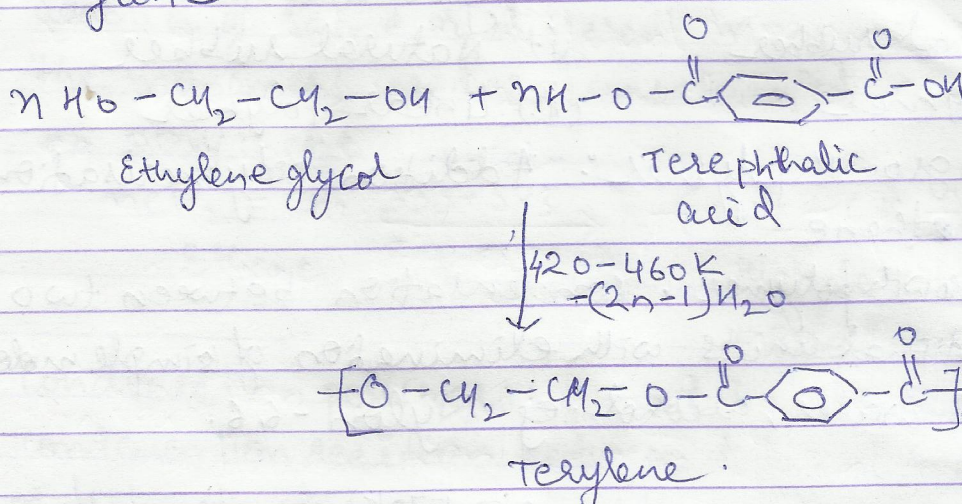 O O
n HO - CH2 - CH2 - OH + nH - O - C - C - OH
Ethylene glycol Terephthalic
acid
420 - 460 K
-(2n-1)H2O
O O
[O - CH2 - CH2 - O - C - C]
Terylene.